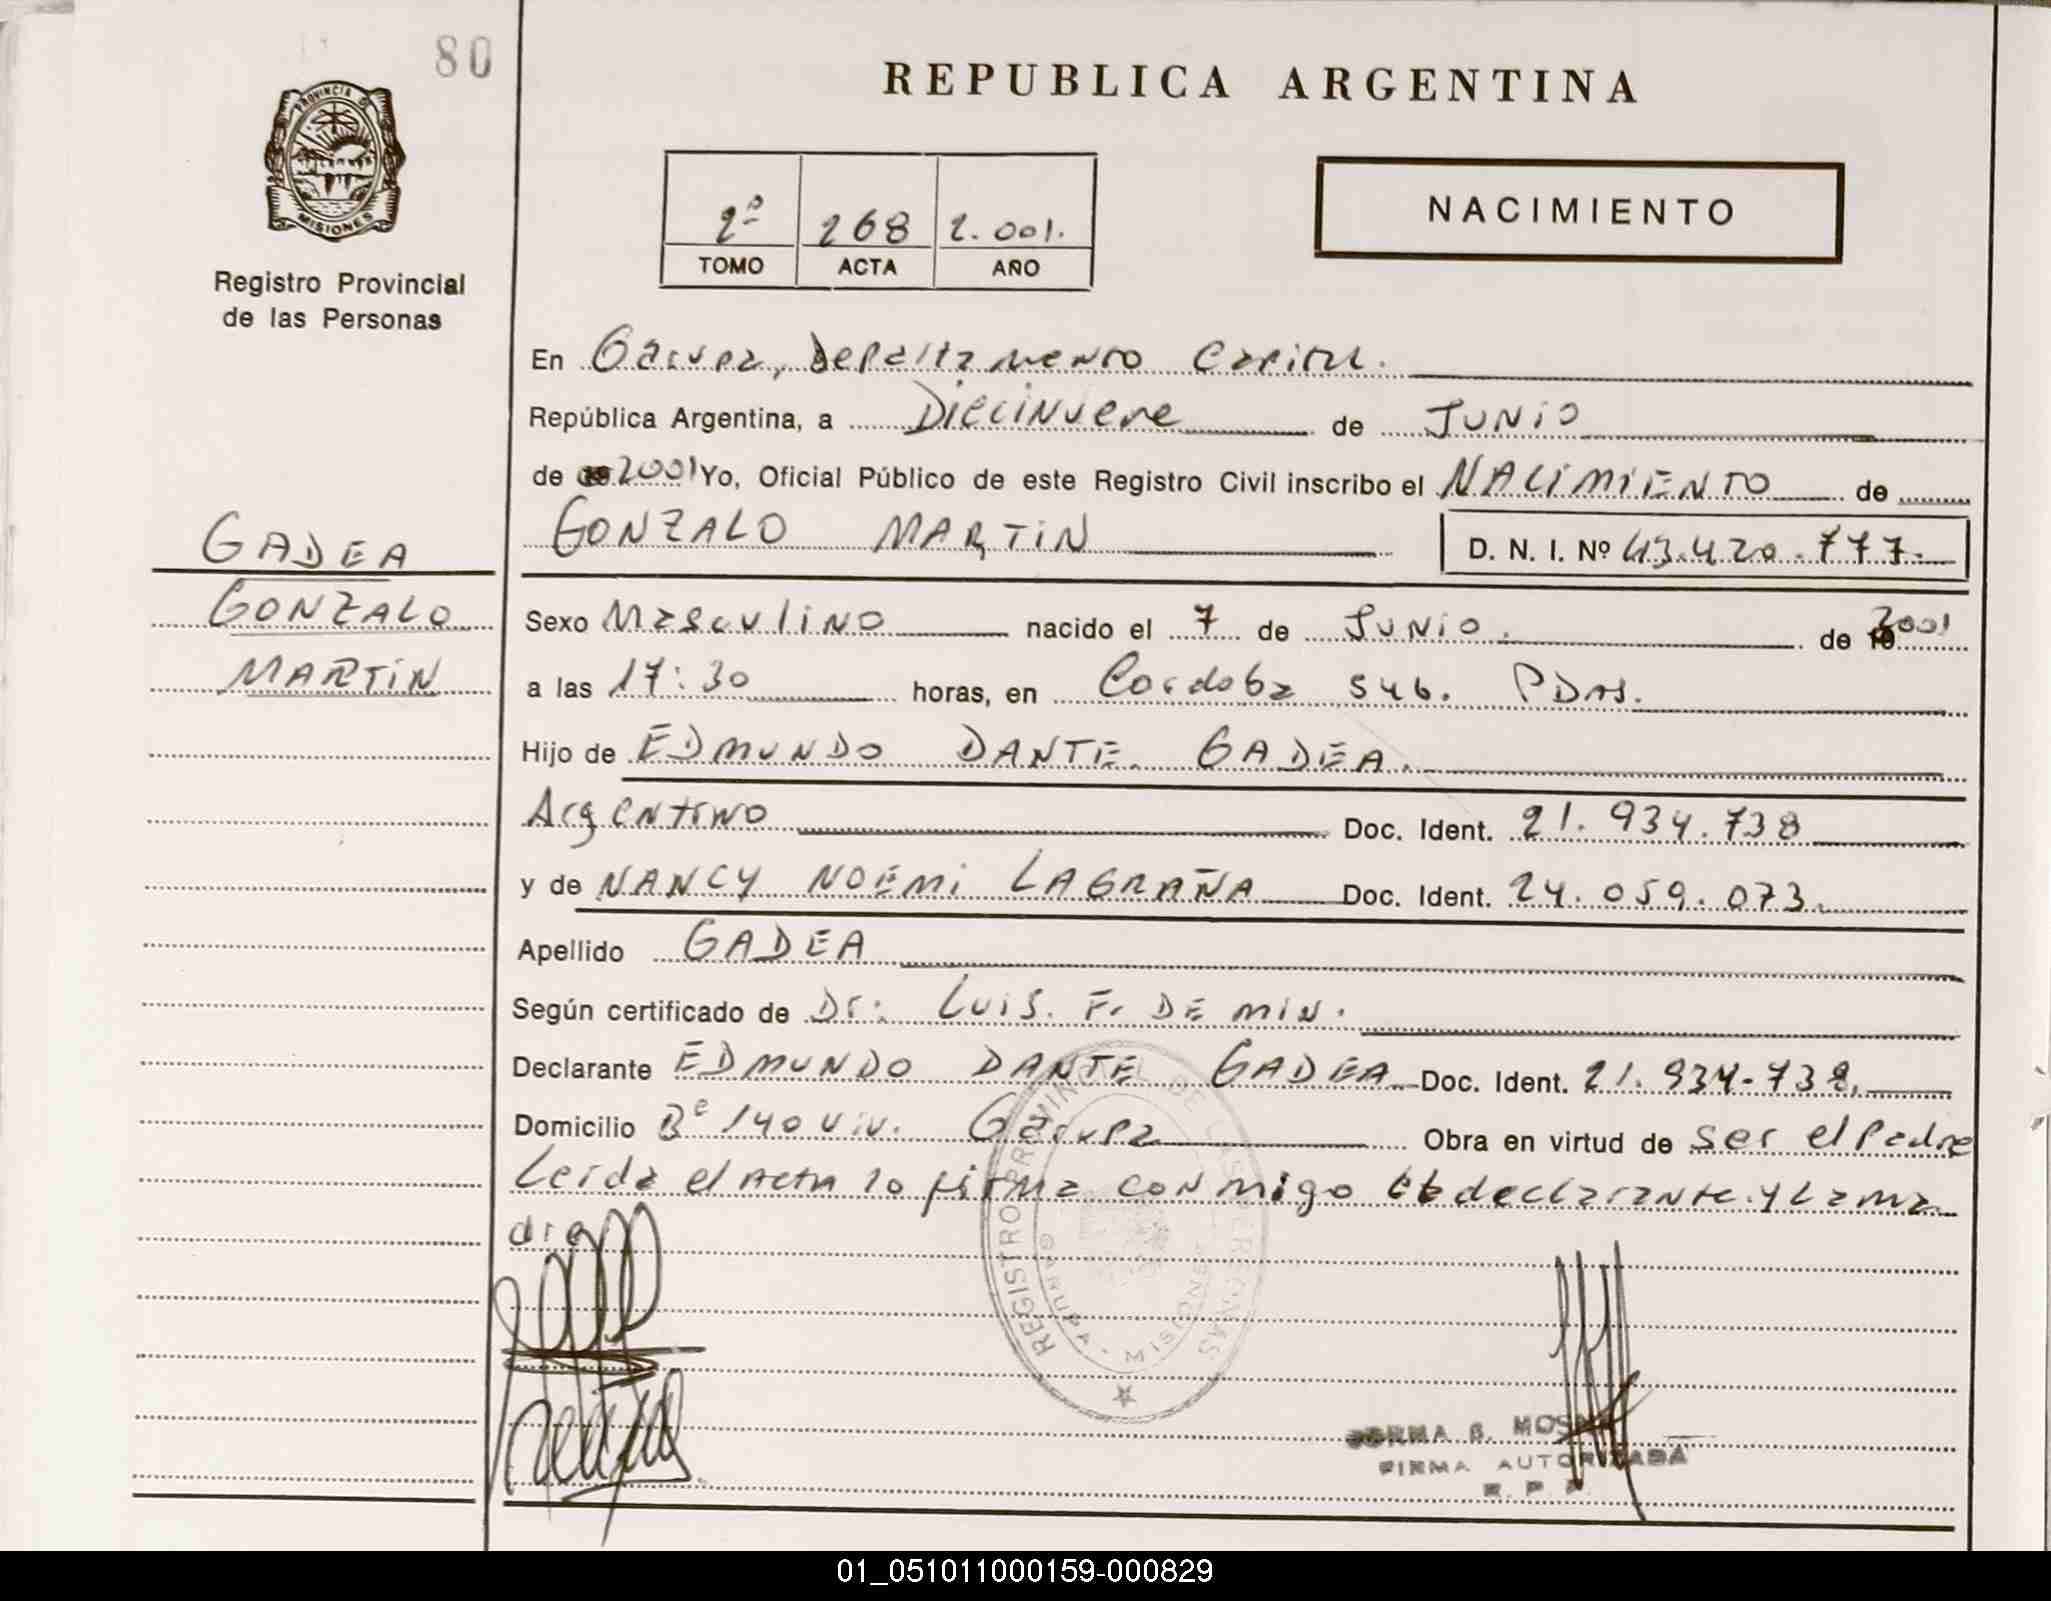 80
REPUBLICA ARGENTINA
PROVINCIA DE
MISIONES
Registro Provincial
de las Personas
2º 268 2.001.
TOMO ACTA AÑO
NACIMIENTO
En Garupa, Departamento Capital.
República Argentina, a Diecinueve de JUNIO
de 2001 Yo, Oficial Público de este Registro Civil inscribo el NACIMIENTO de
GONZALO MARTIN D. N. I. Nº 43.420.777.
GADEA
GONZALO
MARTIN
Sexo Masculino nacido el 7 de Junio. de 2001
a las 17:30 horas, en Cordoba sub. PDAS.
Hijo de EDMUNDO DANTE. GADEA.
Argentino Doc. Ident. 21.934.738
y de NANCY NOEMI LAGRAÑA Doc. Ident. 24.059.073.
Apellido GADEA
Según certificado de Dr: LUIS. F. DE MIN.
Declarante EDMUNDO DANTE GADEA Doc. Ident. 21.934-738.
Domicilio Bº 140 Viv. Garupa Obra en virtud de ser el Padre
Leida el Acta lo firma conmigo el declarante y La ma
dre
REGISTRO PROVINCIAL DE LAS PERSONAS
GARUPA - MISIONES
NORMA B.
FIRMA AUTORIZADA
R. P. P.
01_051011000159-000829